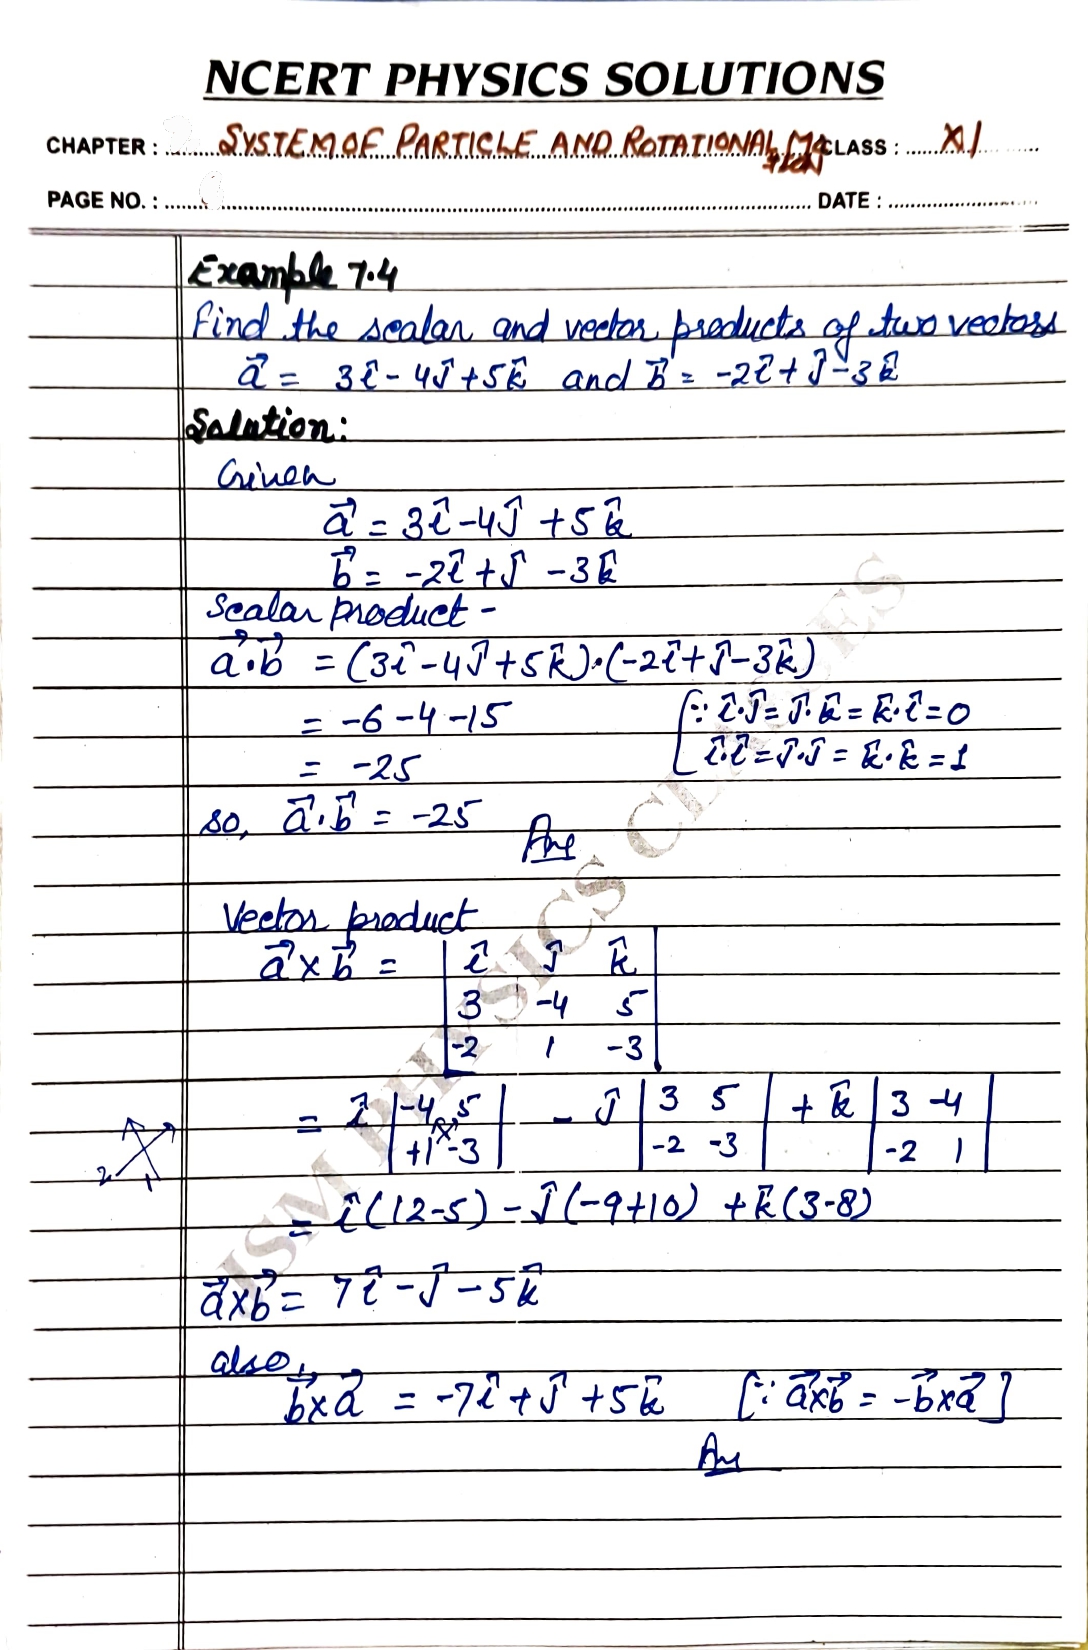 NCERT PHYSICS SOLUTIONS
CHAPTER : SYSTEM OF PARTICLE AND ROTATIONAL MOTION CLASS : XI
PAGE NO. : DATE :
Example 7.4
Find the scalar and vector products of two vectors
a⃗ = 3î - 4ĵ + 5k̂ and b⃗ = -2î + ĵ - 3k̂
Solution:
Given
a⃗ = 3î - 4ĵ + 5k̂
b⃗ = -2î + ĵ - 3k̂
Scalar product -
a⃗·b⃗ = (3î - 4ĵ + 5k̂)·(-2î + ĵ - 3k̂)
= -6 - 4 - 15 [∵ î·ĵ = ĵ·k̂ = k̂·î = 0
= -25 î·î = ĵ·ĵ = k̂·k̂ = 1
so, a⃗·b⃗ = -25
Ans
Vector product
a⃗×b⃗ = | î ĵ k̂ |
| 3 -4 5 |
| -2 1 -3 |
= î | -4 5 | - ĵ | 3 5 | + k̂ | 3 -4 |
| +1 -3 | | -2 -3 | | -2 1 |
2 1
= î(12-5) - ĵ(-9+10) + k̂(3-8)
a⃗×b⃗ = 7î - ĵ - 5k̂
also,
b⃗×a⃗ = -7î + ĵ + 5k̂ [∵ a⃗×b⃗ = -b⃗×a⃗]
Ans
JSM PHYSICS CLASSES